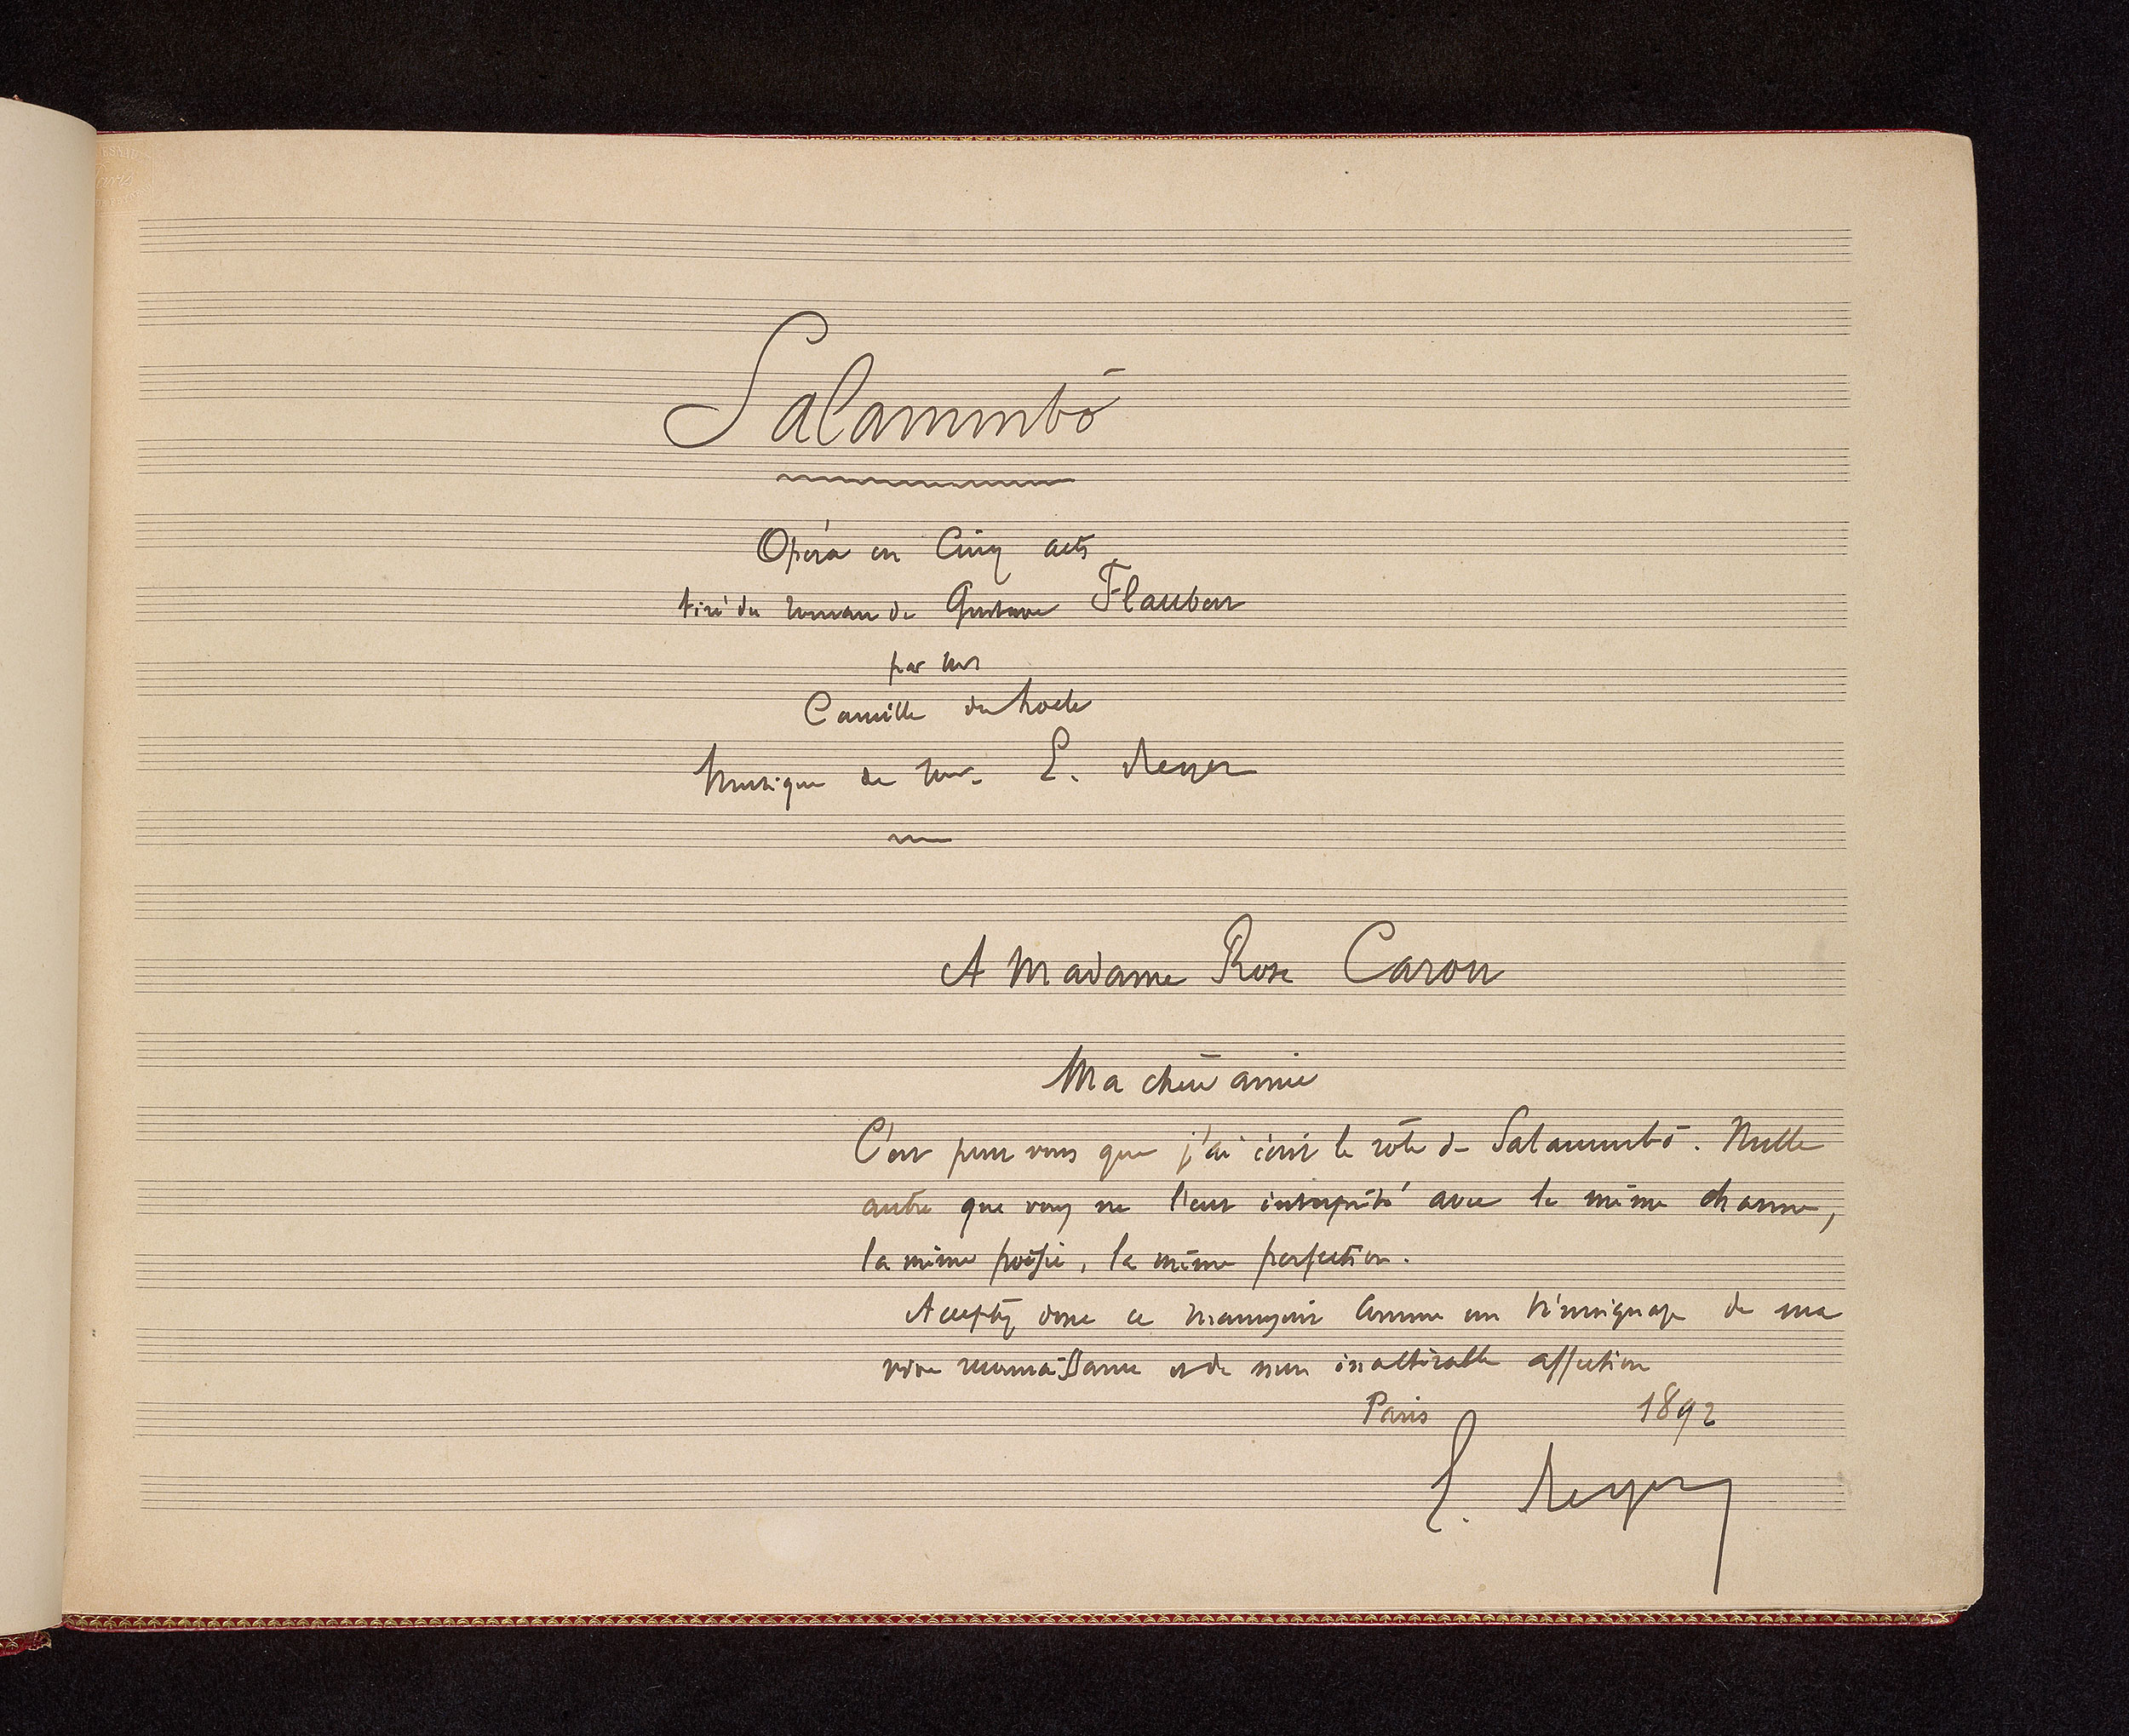 Salammbô
Opéra en Cinq actes
tiré du roman de Gustave Flaubert
par Mr
Camille du Locle
Musique de Mr. E. Reyer
A Madame Rose Caron
Ma chère amie
C'est pour vous que j'ai écrit le rôle de Salammbô. Nulle
autre que vous ne l'eut interprété avec le même charme,
la même poésie, la même perfection.
Acceptez donc ce manuscrit comme un témoignage de ma
vive reconnaissance et de mon inaltérable affection
Paris 1892
E. Reyer